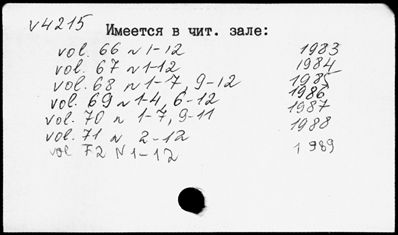 V4215
Имеется в чит. зале:
vol. 66 n 1-12 1983
vol. 67 n 1-12 1984
vol. 68 n 1-7, 9-12 1985
vol. 69 n 1-4, 6-12 1986
vol. 70 n 1-7, 9-11 1987
vol. 71 n 2-12 1988
vol 72 N 1-12 1989